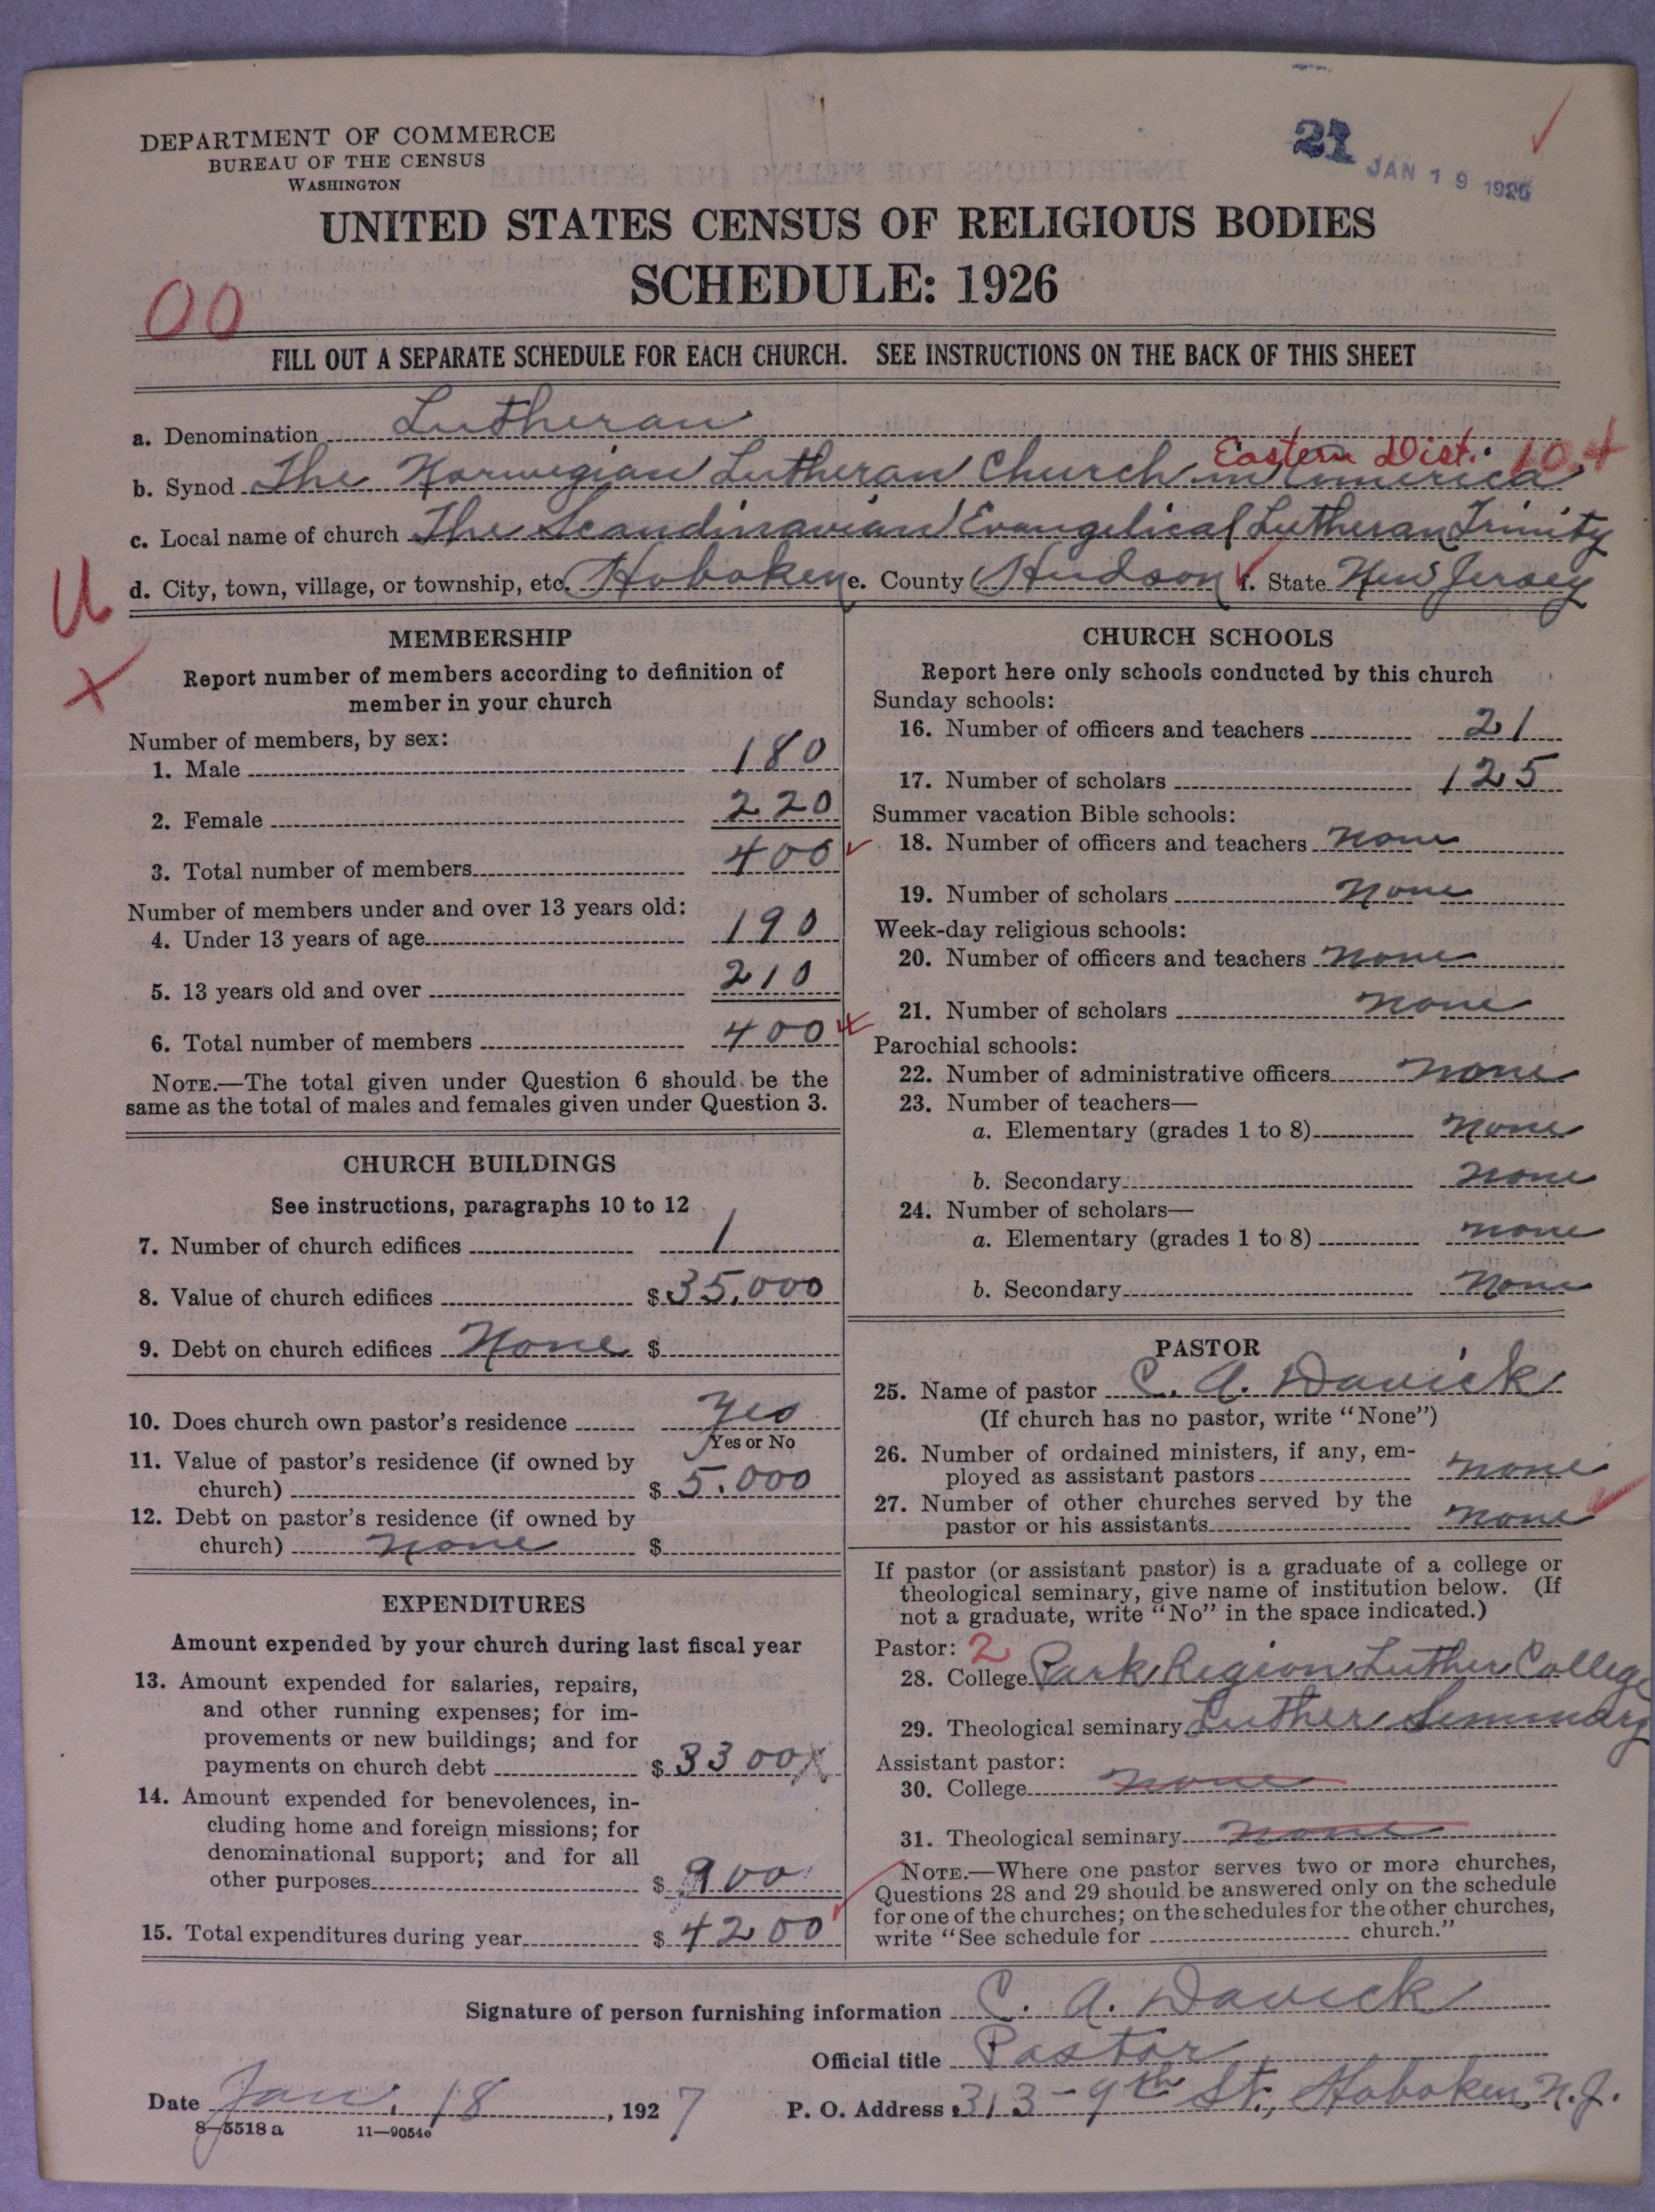 21
JAN 19 192
DEPARTMENT OF COMMERCE
BUREAU OF THE CENSUS
WASHINGTON
UNITED STATES CENSUS OF RELIGIOUS BODIES
SCHEDULE: 1926
00
FILL OUT A SEPARATE SCHEDULE FOR EACH CHURCH. SEE INSTRUCTIONS ON THE BACK OF THIS SHEET
a. Denomination Lutheran
Eastern Dist. 10-4
b. Synod The Norwegian Lutheran Church in America
c. Local name of church The Scandinavian Evangelical Lutheran Trinity
d. City, town, village, or township, etc. Hoboken e. County Hudson f. State New Jersey
U
X
MEMBERSHIP
Report number of members according to definition of
member in your church
Number of members, by sex:
1. Male 180
2. Female 220
3. Total number of members 400
Number of members under and over 13 years old:
4. Under 13 years of age 190
5. 13 years old and over 210
6. Total number of members 400
NOTE.—The total given under Question 6 should be the
same as the total of males and females given under Question 3.
CHURCH BUILDINGS
See instructions, paragraphs 10 to 12
7. Number of church edifices 1
8. Value of church edifices $ 35,000
9. Debt on church edifices None $
10. Does church own pastor's residence Yes
Yes or No
11. Value of pastor's residence (if owned by
church) $ 5,000
12. Debt on pastor's residence (if owned by
church) None $
EXPENDITURES
Amount expended by your church during last fiscal year
13. Amount expended for salaries, repairs,
and other running expenses; for im-
provements or new buildings; and for
payments on church debt $ 3300
14. Amount expended for benevolences, in-
cluding home and foreign missions; for
denominational support; and for all
other purposes $ 900
15. Total expenditures during year $ 4200
CHURCH SCHOOLS
Report here only schools conducted by this church
Sunday schools:
16. Number of officers and teachers 21
17. Number of scholars 125
Summer vacation Bible schools:
18. Number of officers and teachers None
19. Number of scholars None
Week-day religious schools:
20. Number of officers and teachers None
21. Number of scholars None
Parochial schools:
22. Number of administrative officers None
23. Number of teachers—
a. Elementary (grades 1 to 8) None
b. Secondary None
24. Number of scholars—
a. Elementary (grades 1 to 8) None
b. Secondary None
PASTOR
25. Name of pastor C. A. Davick
(If church has no pastor, write "None")
26. Number of ordained ministers, if any, em-
ployed as assistant pastors None
27. Number of other churches served by the
pastor or his assistants None
If pastor (or assistant pastor) is a graduate of a college or
theological seminary, give name of institution below. (If
not a graduate, write "No" in the space indicated.)
Pastor: 2
28. College Park Region Luther College
29. Theological seminary Luther Seminary
Assistant pastor:
30. College None
31. Theological seminary None
NOTE.—Where one pastor serves two or more churches,
Questions 28 and 29 should be answered only on the schedule
for one of the churches; on the schedules for the other churches,
write "See schedule for church."
Signature of person furnishing information C. A. Davick
Official title Pastor
Date Jan. 18, 1927 P. O. Address 313-9th St., Hoboken, N.J.
8—5518 a 11—9054